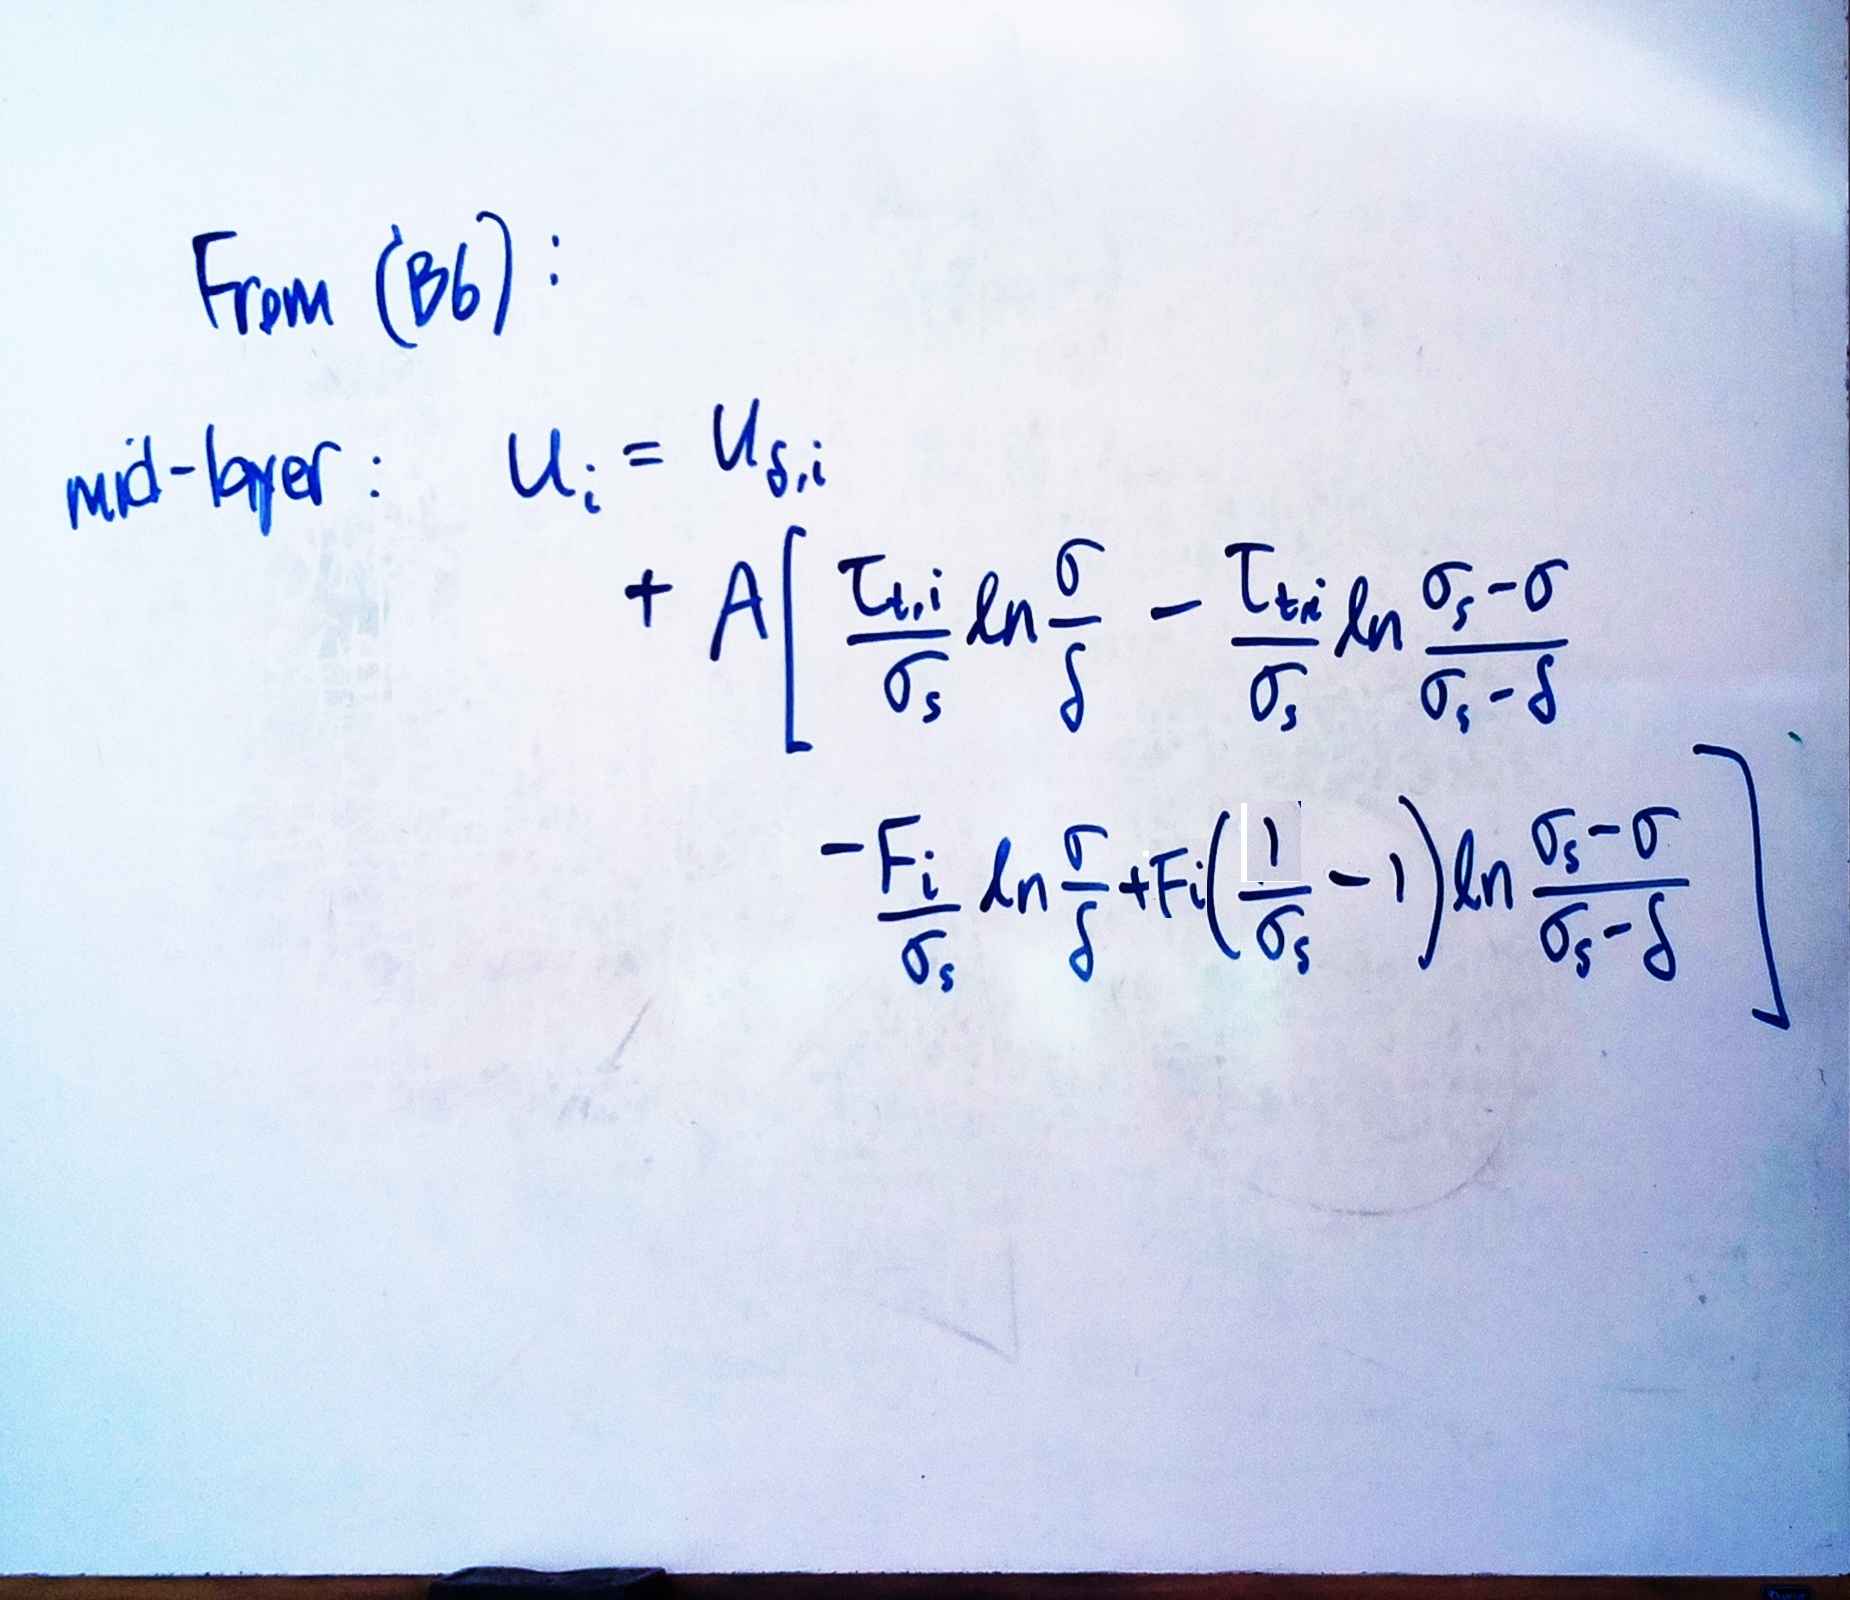 From (B6):
mid-layer: u_i = u_{δ,i}
+ A[ \frac{τ_{t,i}}{σ_s} ln \frac{σ}{δ} - \frac{τ_{t,i}}{σ_s} ln \frac{σ_s-σ}{σ_s-δ}
- \frac{F_i}{σ_s} ln \frac{σ}{δ} + F_i( \frac{1}{σ_s} - 1) ln \frac{σ_s-σ}{σ_s-δ} ]